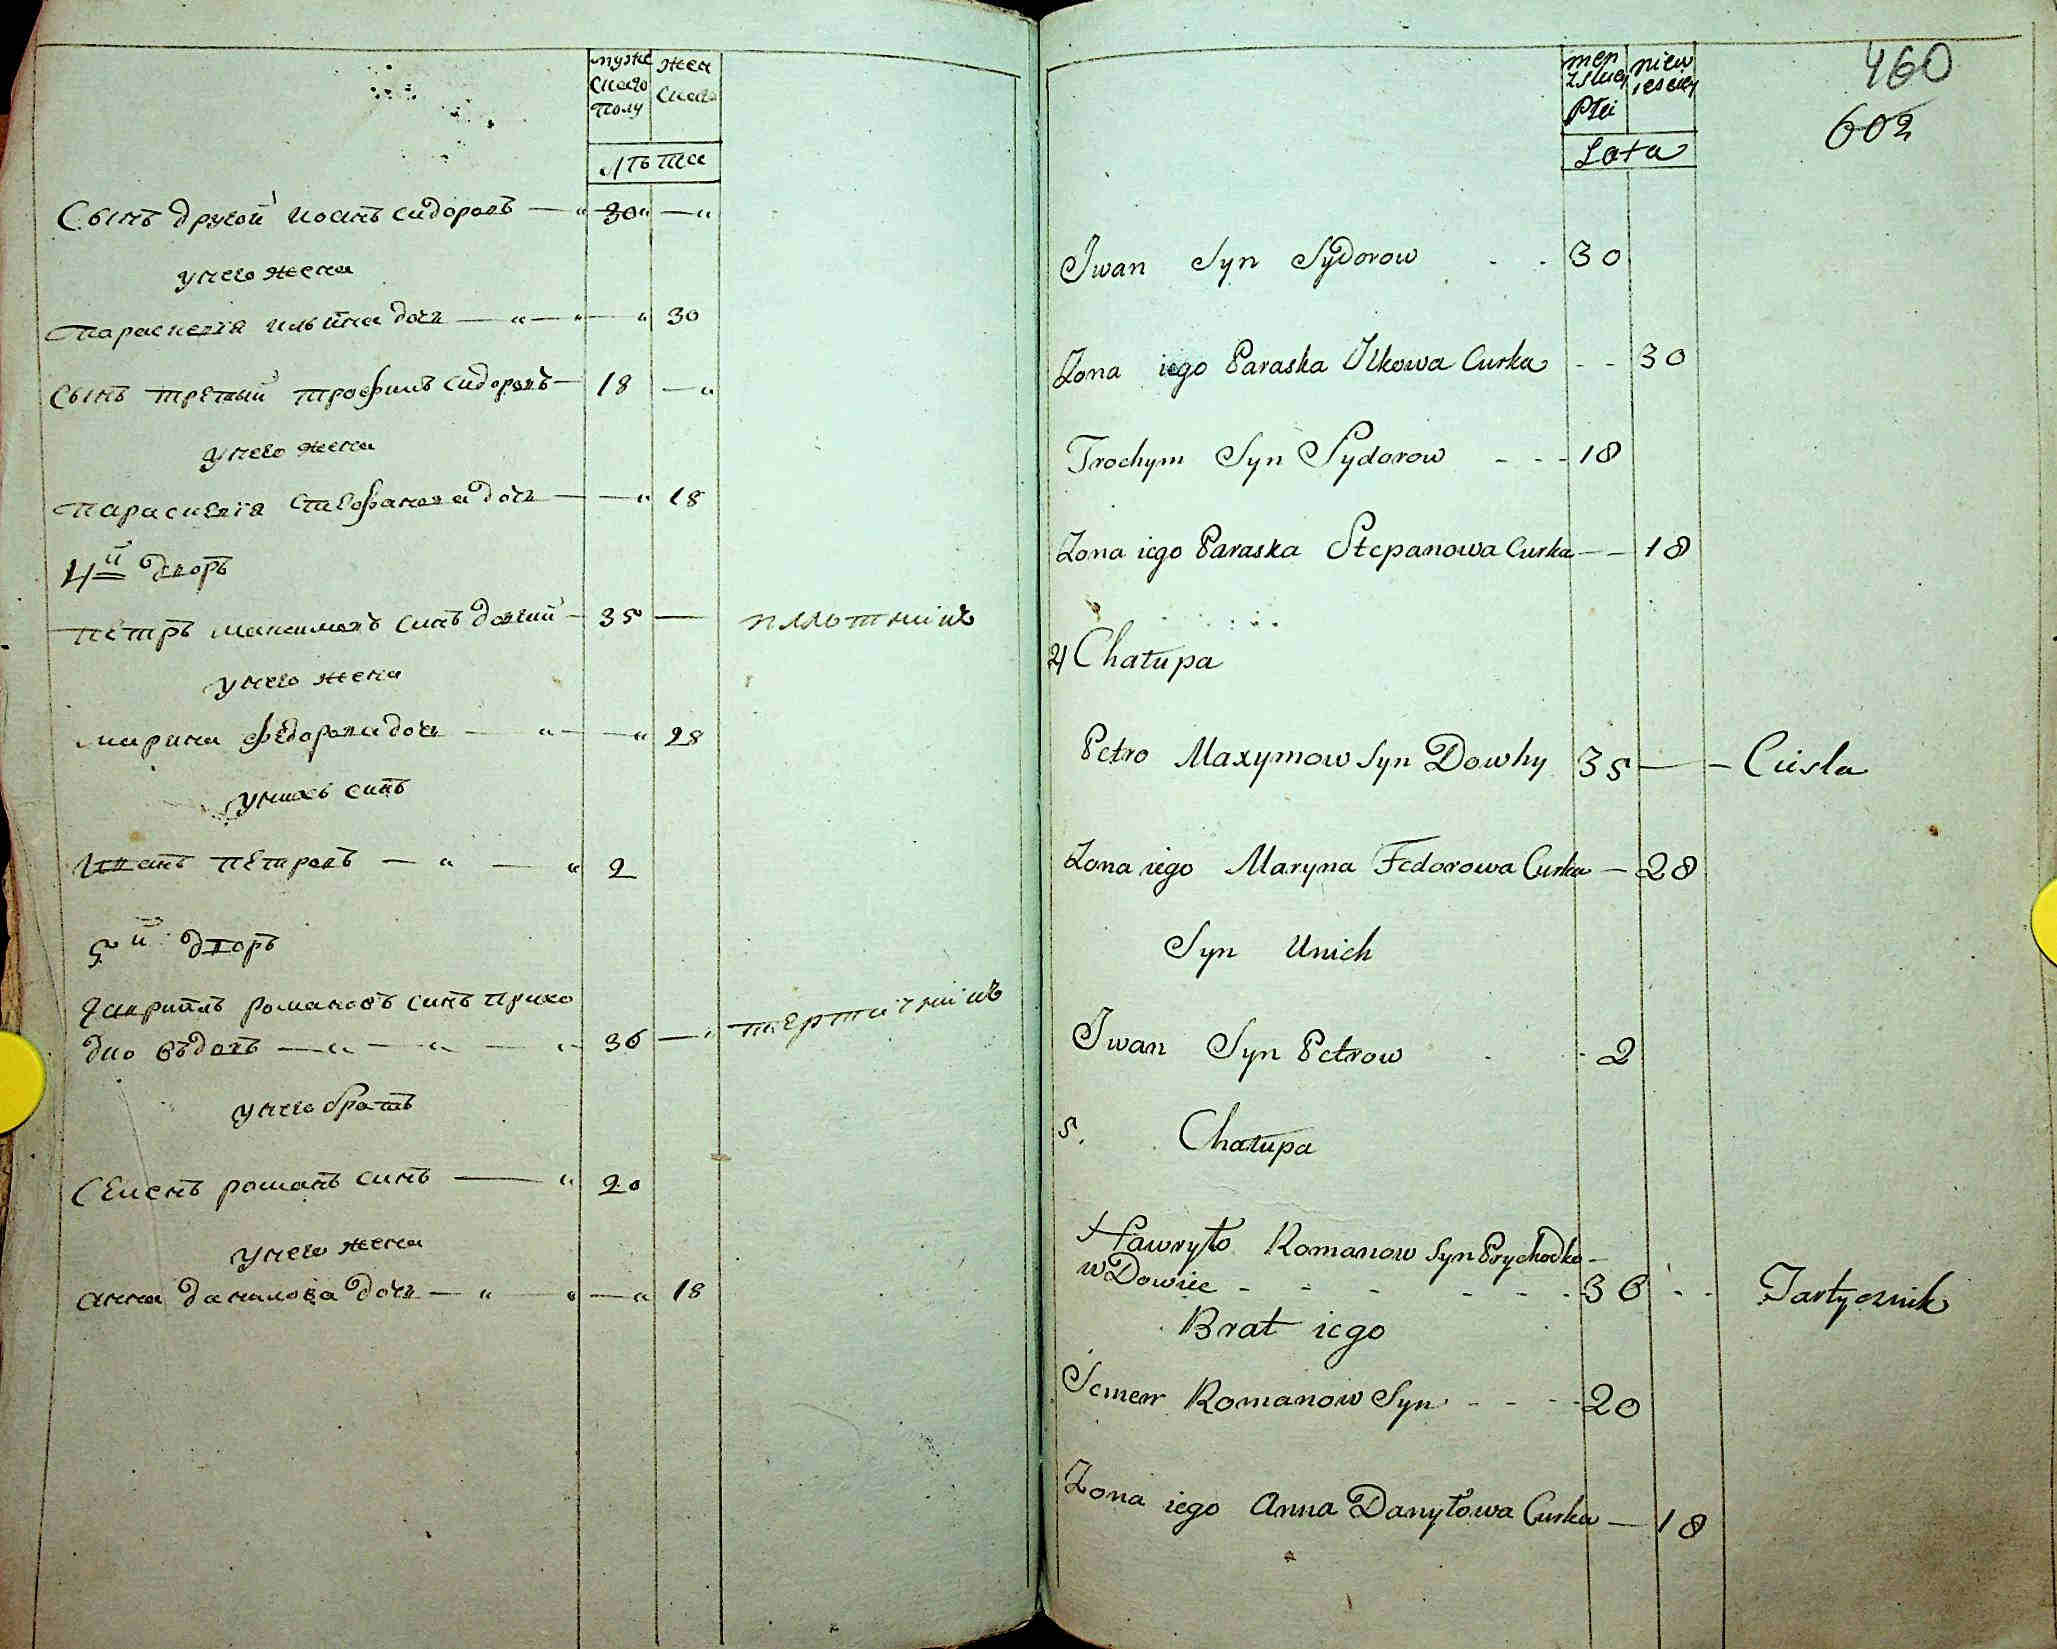 мужс
ского
полу
жен
ского
лѣта
Сынъ другой иоанъ сидоровъ — „ 30 „ — „
унего жена
параскевiя ильина дочь — „ — „ — „ 30
сынъ третьiй трофимъ сидоровъ — 18 — „
унего жена
параскевiя стефанова дочь — — „ 18
4й дворъ
петръ максимовъ синъ довгий — 35 — плотникъ
унего жена
марина федорова дочь — „ — — „ 28
унихъ синъ
Иванъ петровъ — „ — „ 2
5й дворъ
гавриилъ романовъ синъ прихо
дко вдовъ — „ — „ — „ 36 — „ тертичникъ
унего братъ
Семенъ романъ синъ — „ 20
унего жена
анна данилова дочь — „ — „ — „ 18
460
602
męz
zskiey
Płci
niew
iesciey
Lata
Iwan Syn Sydorow - - 30
Zona iego Paraska Ilkowa Curka - - 30
Trochym Syn Sydorow - - - 18
Zona iego Paraska Stepanowa Curka — — 18
4 Chałupa
Petro Maxymow Syn Dowhy 35 — — Ciesla
Zona iego Maryna Fedorowa Curka — 28
Syn Unich
Iwan Syn Petrow - - 2
5. Chałupa
Hawryło Romanow Syn Prychodko —
wDowiec - - - - - - 36 - - Tartycznik
Brat iego
Semen Romanow Syn - - - 20
Zona iego Anna Danyłowa Curka — 18